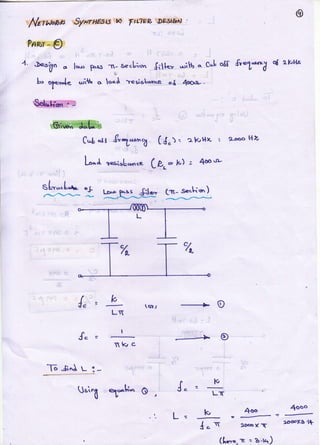 ④
NETWORK SYNTHESIS & FILTER DESIGN
PART - C
1. Design a low pass π-section filter with a Cut off frequency of 2KHz
to operate with a load resistance of 400Ω.
Solution:-
Given data:-
Cut off frequency (fc) = 2KHz = 2000 Hz
Load resistance (RL or k) = 400Ω
Structure of Low pass filter (π-Section)
L
C/2 C/2
fc = k/Lπ → ①
fc = 1/πkC → ②
To find L :-
Using equation ①, fc = k/Lπ
∴ L = k/fcπ = 400/2000×π = 4000/2000×3.14
(here, π = 3.14)